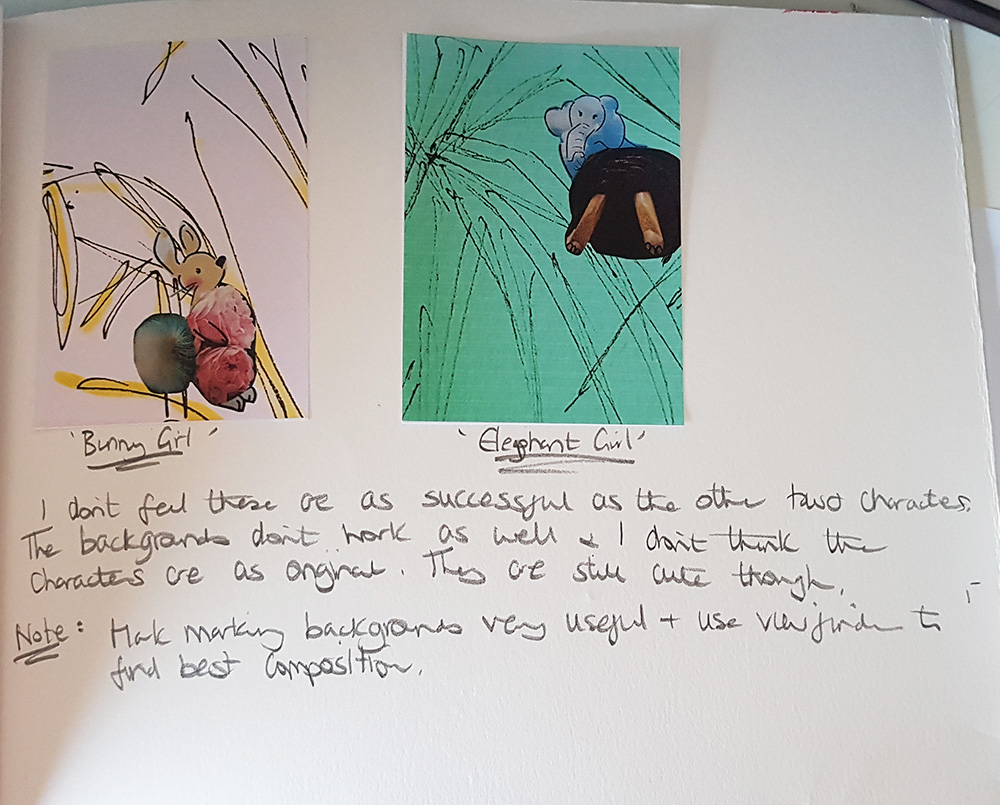 'Bunny Girl'
'Elephant Girl'
I don't feel these are as successful as the other two characters.
The backgrounds don't work as well & I don't think the
characters are as original. They are still cute though.
Note: Mark marking backgrounds very useful + use viewfinder to
find best composition.